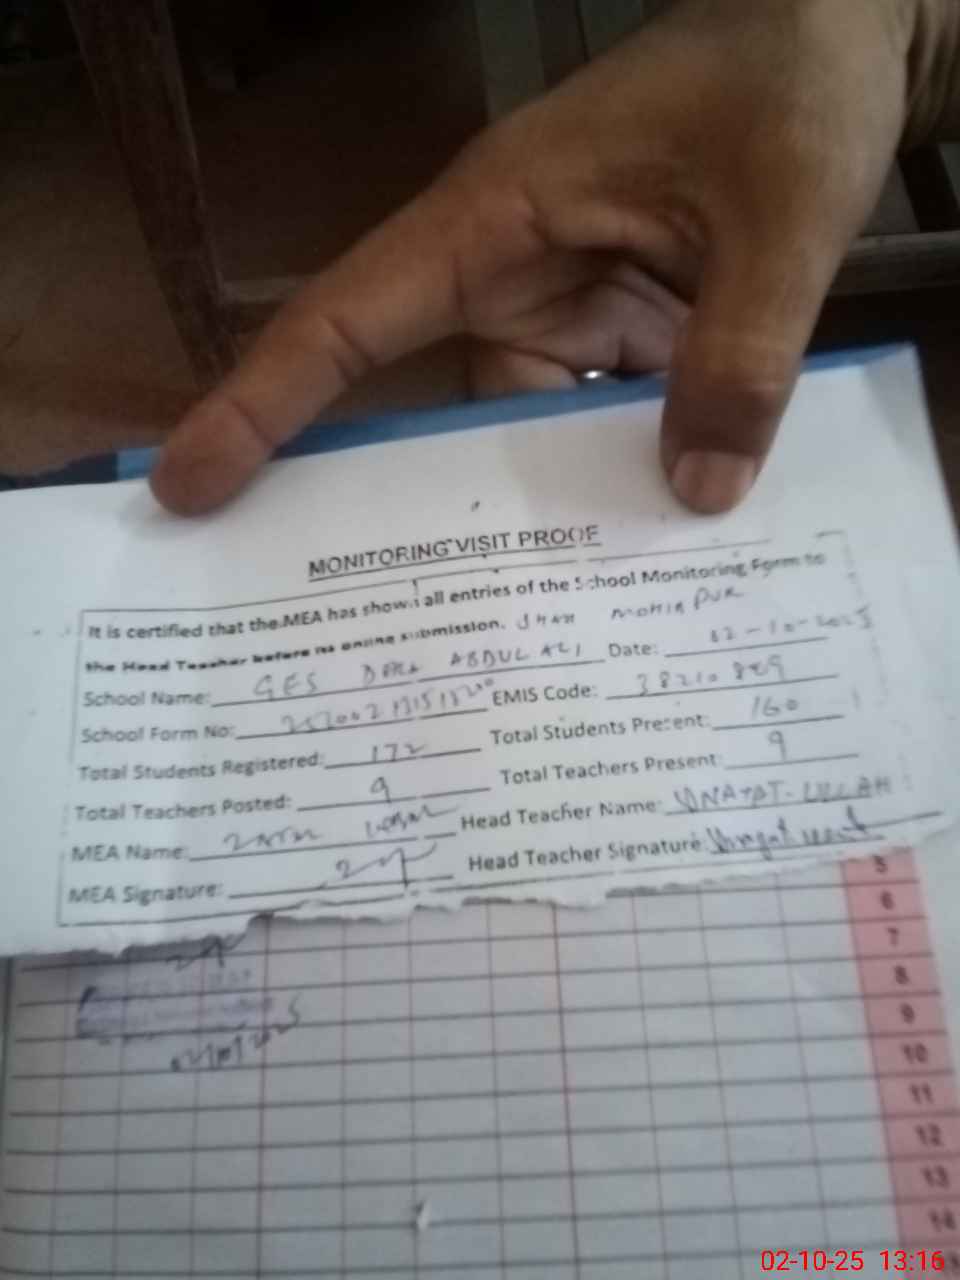 MONITORING VISIT PROOF
It is certified that the MEA has shown all entries of the School Monitoring Form to
the Head Teacher before its online submission. SHAH MOHIB PUR
School Name: GES DERA ABDUL ALI Date: 02-10-2025
School Form No: EMIS Code: 38210889
Total Students Registered: 172 Total Students Present: 160
Total Teachers Posted: 9 Total Teachers Present: 9
MEA Name: Head Teacher Name: INAYAT-ULLAH
MEA Signature: Head Teacher Signature:
5
6
7
8
9
02/10/2025
10
11
12
13
14
02-10-25 13:16